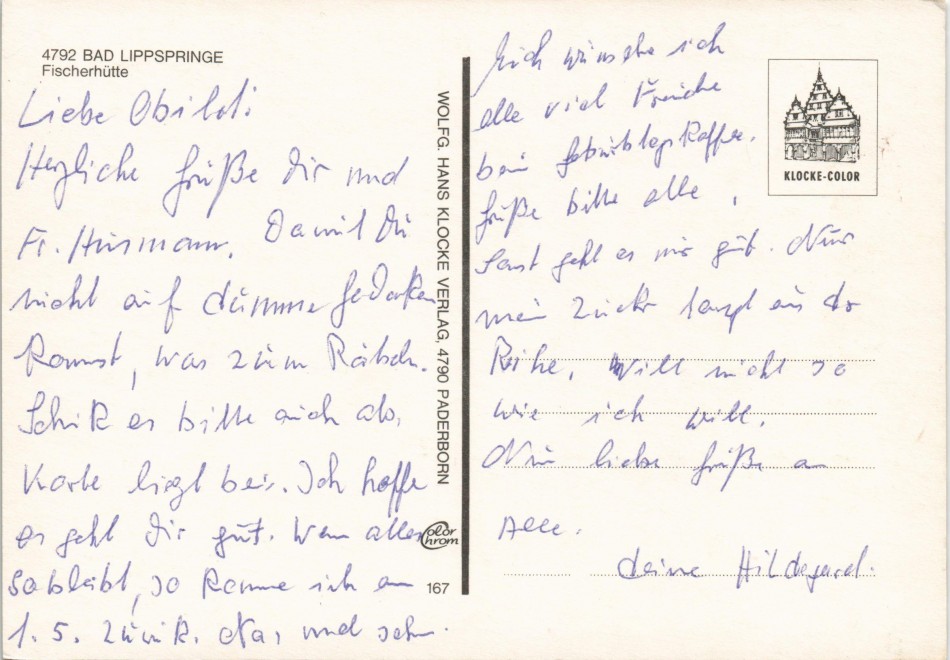 4792 BAD LIPPSPRINGE
Fischerhütte
Liebe
Herzliche Grüße Dir und
Fr. Husmann. Damit Du
nicht auf dumme Gedanken
kommst, was zum Rätseln.
Schik es bitte auch ab.
Karte liegt bei. Ich hoffe
es geht Dir gut. Wenn alles
so bleibt, so komme ich am
1. 5. zurük. Na, und sehn
WOLFG. HANS KLOCKE VERLAG, 4790 PADERBORN
Color
Chrom
167
Euch wünsche ich
alle viel Freude
beim Geburtstagskaffee.
Grüße bitte alle,
Sonst geht es mir gut. Nur
mein Zucker tanzt aus der
Reihe, will nicht so
wie ich will.
Nun liebe Grüße an
Alle.
deine Hildegard.
KLOCKE-COLOR